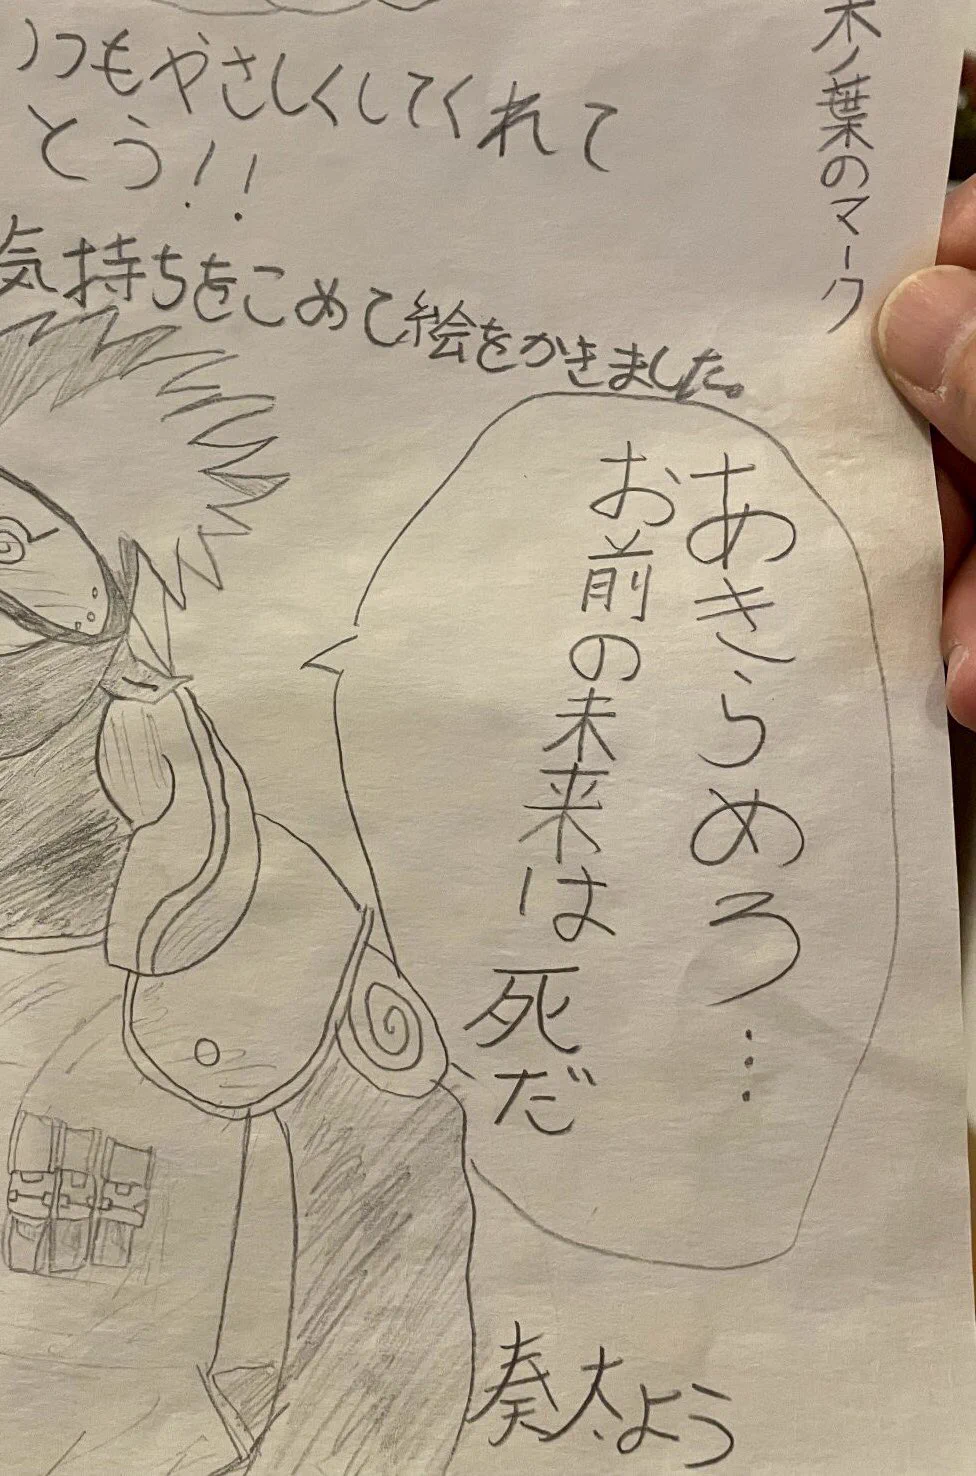 いつもやさしくしてくれて
とう!!
気持ちをこめて絵をかきました。
木ノ葉のマーク
あきらめろ…
お前の未来は死だ
奏太よう